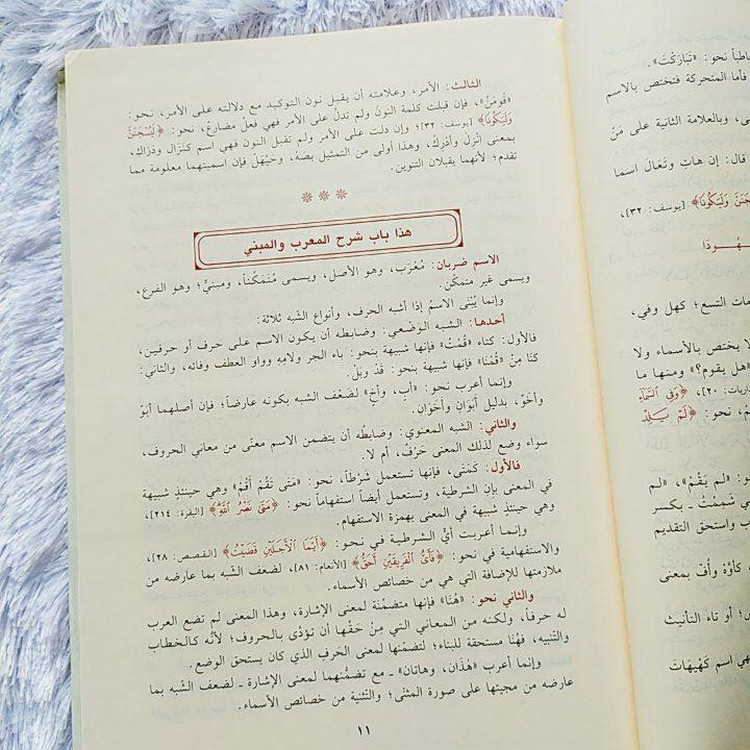 الثالث: الأمر، وعلامته أن يقبل نون التوكيد مع دلالته على الأمر، نحو:
«قُومَنَّ»، فإن قبلت كلمة النونَ ولم تدلَّ على الأمر فهي فعلٌ مضارعٌ، نحو: ﴿لَيُسْجَنَنَّ
وَلَيَكُونًا﴾ [يوسف: ٣٢]؛ وإن دلت على الأمر ولم تقبل النون فهي اسم كنَزَالِ ودَرَاكِ،
بمعنى انْزِلْ وأدْرِكْ، وهذا أولى من التمثيل بِصَهْ، وحَيَّهَلْ فإن اسميتهما معلومة مما
تقدم؛ لأنهما يقبلان التنوين.
* * *
هذا باب شرح المعرب والمبني
الاسم ضربان: مُعْرَب، وهو الأصل، ويسمى مُتَمَكِّناً، ومبنيٌّ؛ وهو الفرع،
ويسمى غير متمكِّن.
وإنما يُبْنَى الاسمُ إذا أشبه الحرف، وأنواع الشَّبه ثلاثة:
أحدها: الشبه الوَضْعي: وضابطه أن يكون الاسم على حرف أو حرفين،
فالأول: كتاء «قُمْتُ» فإنها شبيهة بنحو: باء الجر ولامه وواو العطف وفائه، والثاني:
كنا مِنْ «قُمْنَا» فإنها شبيهة بنحو: قَدْ وبَلْ.
وإنما أعرب نحو: «أب، وأخ» لضَعْف الشبه بكونه عارضاً؛ فإن أصلهما أَبَوٌ
وأَخَوٌ، بدليل أَبَوَانِ وأَخَوَانِ.
والثاني: الشبه المعنوي: وضابطُه أن يتضمن الاسم معنًى من معاني الحروف،
سواء وضع لذلك المعنى حَرْفٌ، أم لا.
فالأول: كمَتَى، فإنها تستعمل شَرْطاً، نحو: «مَتَى تَقُمْ أَقُمْ» وهي حينئذٍ شبيهة
في المعنى بإن الشرطية، وتستعمل أيضاً استفهاماً نحو: ﴿مَتَى نَصْرُ اللَّهِ﴾ [البقرة: ٢١٤]،
وهي حينئذ شبيهة في المعنى بهمزة الاستفهام.
وإنما أعربت أيُّ الشرطية في نحو: ﴿أَيَّمَا الْأَجَلَيْنِ قَضَيْتُ﴾ [القصص: ٢٨]،
والاستفهامية في نحو: ﴿فَأَيُّ الْفَرِيقَيْنِ أَحَقُّ﴾ [الأنعام: ٨١]، لضعف الشَّبه بما عارضه من
ملازمتها للإضافة التي هي من خصائص الأسماء.
والثاني نحو: «هُنَا» فإنها متضمّنة لمعنى الإشارة، وهذا المعنى لم تضع العرب
له حرفاً، ولكنه من المعاني التي مِنْ حَقّها أن تؤدّى بالحروف؛ لأنَّه كالخطاب
والتَّنبيه، فهُنَا مستحقة للبناء؛ لتضمنها لمعنى الحَرفِ الذي كان يستحق الوضع.
وإنما أعرب «هٰذَان، وهاتان» ـ مع تضمُّنهما لمعنى الإشارة ـ لضعف الشَّبه بما
عارضه من مجيئها على صورة المثنَّى؛ والتَّثنية من خصائص الأسماء.
١١
نحو: «تَبَارَكْتَ».
فأما المتحركة فتختص بالاسم
، وبالعلامة الثانية على مَنْ
قال: إن هاتِ وتَعَالَ اسما
وَلَيَكُونًا﴾ [يوسف: ٣٢]،
التسع؛ كهل وفي،
لا يختص بالأسماء ولا
«هل يقوم؟» ومنها ما
٢٠]، ﴿وَفِي السَّمَاءِ
نحو: ﴿لَمْ يَلِدْ
نحو: «لم يَقُمْ»، «لم
شَمَمْتُ ـ بكسر
واستحق التقديم
وأفّ بمعنى
؛ أو تاء التأنيث
فهي اسم كَهَيْهَاتَ